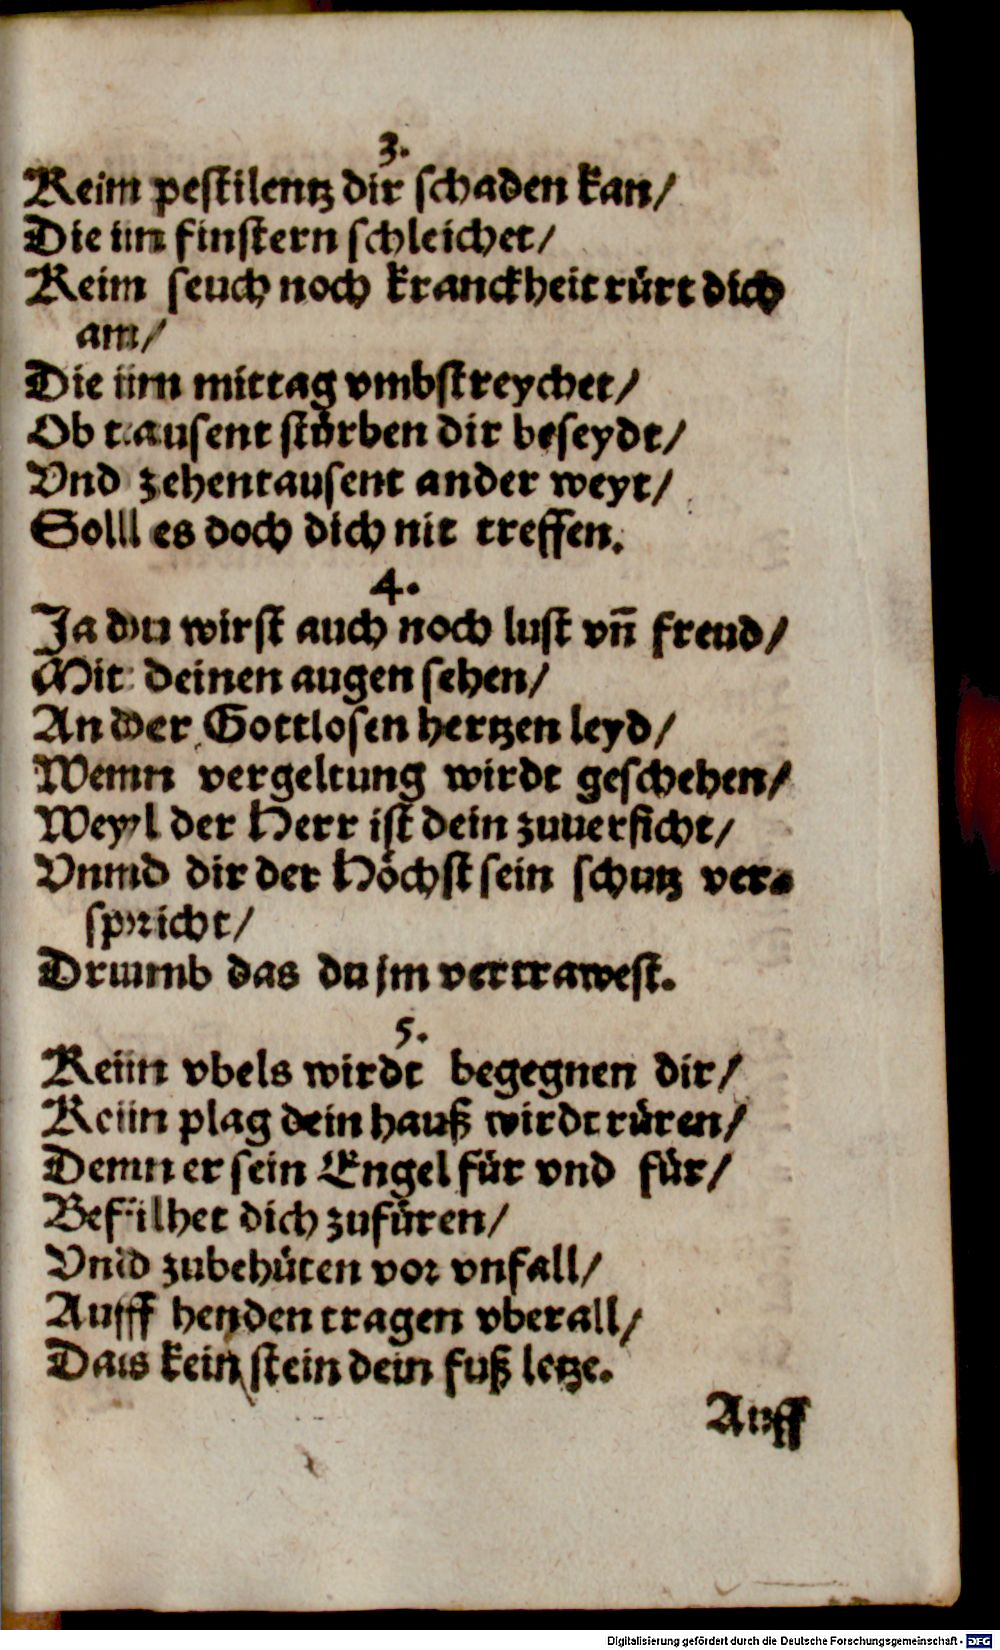 3.
Kein pestilentz dir schaden kan/
Die im finstern schleichet/
Kein seuch noch kranckheit rürt dich
an/
Die im mittag vmbstreychet/
Ob tausent stürben dir beseydt/
Vnd zehentausent ander weyt/
Soll es doch dich nit treffen.
4.
Ja du wirst auch noch lust vñ freud/
Mit deinen augen sehen/
An der Gottlosen hertzen leyd/
Wenn vergeltung wirdt geschehen/
Weyl der Herr ist dein zuuersicht/
Vnnd dir der Höchst sein schutz ver-
spricht/
Drumb das du jm vertrawest.
5.
Kein vbels wirdt begegnen dir/
Kein plag dein hauß wirdt rüren/
Denn er sein Engel für vnd für/
Befilhet dich zufüren/
Vnd zubehüten vor vnfall/
Auff henden tragen vberall/
Das kein stein dein fuß letze.
Auff
Digitalisierung gefördert durch die Deutsche Forschungsgemeinschaft - DFG